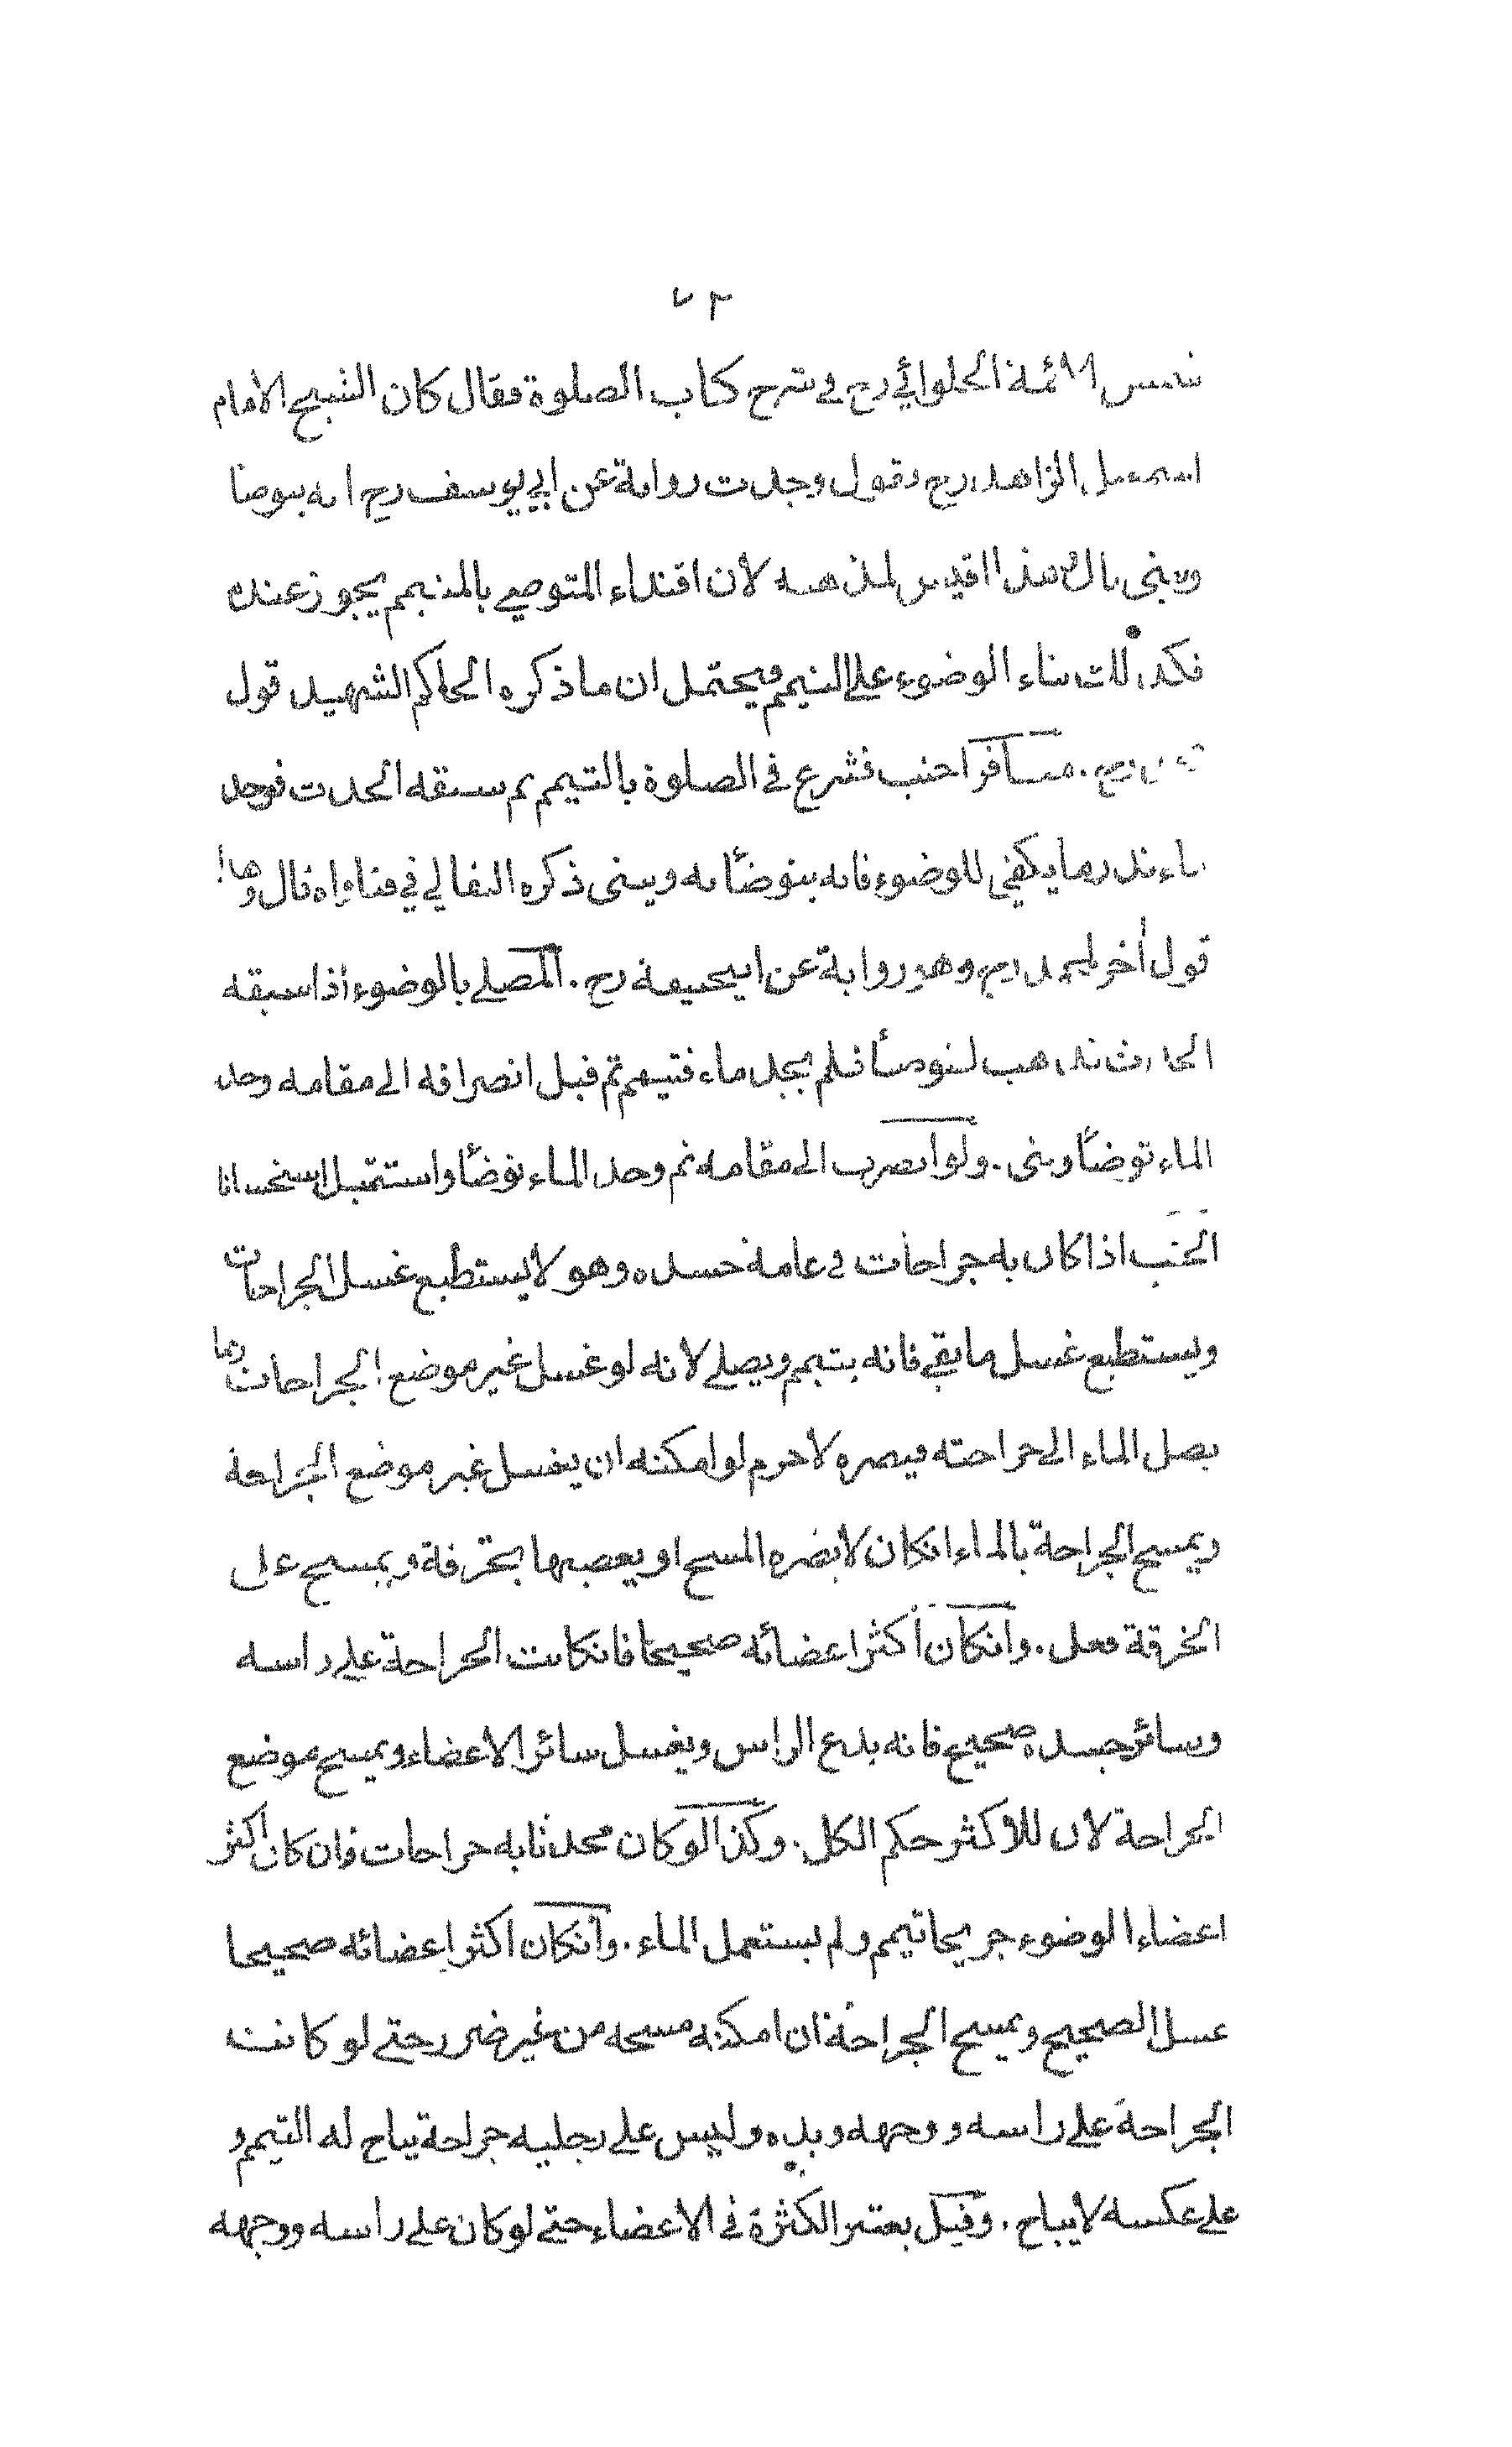 شمس الائمة الحلوائي رح في شرح كتاب الصلوة فقال كان الشيخ الامام
اسمعيل الزاهد رح يقول وجدت رواية عن ابي يوسف رح انه يتوضأ
ويبنى لمذهبه لان اقتداء المتوضي بالمتيمم يجوز عنده
فكذلك بناء الوضوء على التيمم ويحتمل ان ما ذكره الحاكم الشهيد قول
رح . مسافر اجنب فشرع في الصلوة بالتيمم ثم سبقه الحدث فوجد
ماء قدر ما يكفي للوضوء فانه يتوضأ به ويبنى ذكره البقالي في فتاواه قال وهذا
قول آخر لمحمد رح وهو رواية عن ابيحنيفة رح . المصلي بالوضوء اذا سبقه
الحدث فذهب ليتوضأ فلم يجد ماء فتيمم ثم قبل انصرافه الى مقامه وجد
الماء توضأ وبنى . ولو انصرف الى مقامه ثم وجد الماء توضأ واستقبل استحسانا
الجنب اذا كان به جراحات في عامة جسده وهو لا يستطيع غسل الجراحات
ويستطيع غسل ما بقي فانه يتيمم ويصلي لانه لو غسل غير موضع الجراحات ربما
يصل الماء الى جراحته فيضره لاجرم لو امكنه ان يغسل غير موضع الجراحة
ويمسح الجراحة بالماء انكان لا يضره المسح او يعصبها بخرقة ويمسح على
الخرقة فعل . وانكان أكثر اعضائه صحيحا فانكانت الجراحة على راسه
وسائر جسده صحيح فانه يدع الراس ويغسل سائر الاعضاء ويمسح موضع
الجراحة لان للاكثر حكم الكل . وكذا لو كان محدثا به جراحات فان كان اكثر
اعضاء الوضوء جريحا تيمم ولم يستعمل الماء . وانكان اكثر اعضائه صحيحا
غسل الصحيح ويمسح الجراحة ان امكنه مسحه من غير ضرر حتى لو كانت
الجراحة على راسه ووجهه ويده وليس على رجليه جراحة يباح له التيمم و
على عكسه لا يباح . وقيل يعتبر الكثرة في الاعضاء حتى لو كان على راسه ووجهه